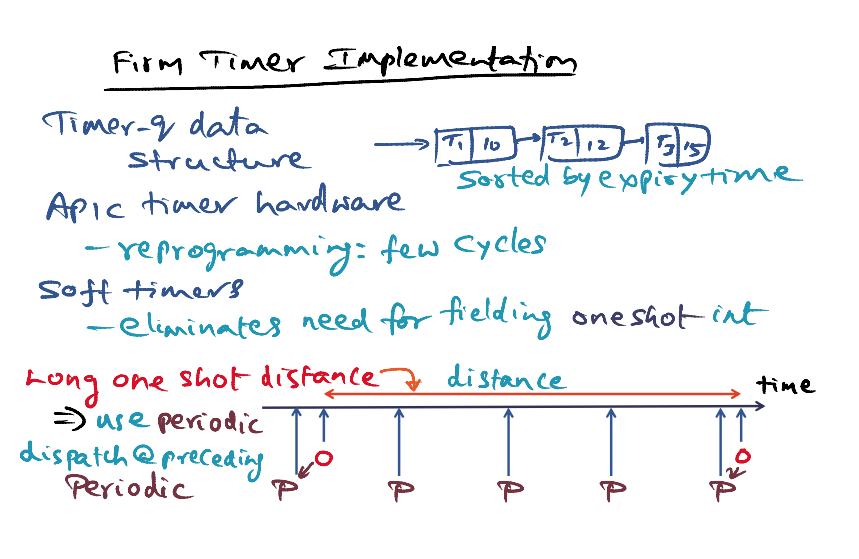 Firm Timer Implementation
Timer-q data
structure
T1 10 T2 12 T3 15
sorted by expiry time
APIC timer hardware
- reprogramming: few cycles
Soft timers
- eliminates need for fielding one shot int
Long one shot distance distance time
⇒ use periodic
dispatch @ preceding
Periodic
O O
P P P P P